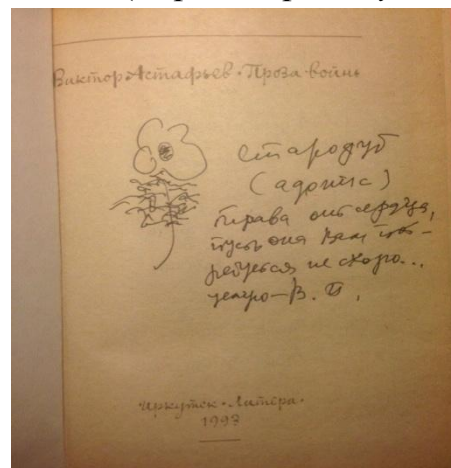 Виктор Астафьев • Проза войны
стародуб
(адонис)
трава от сердца,
пусть она Вам пот-
ребуется не скоро...
В.
Иркутск • Литера •
1993